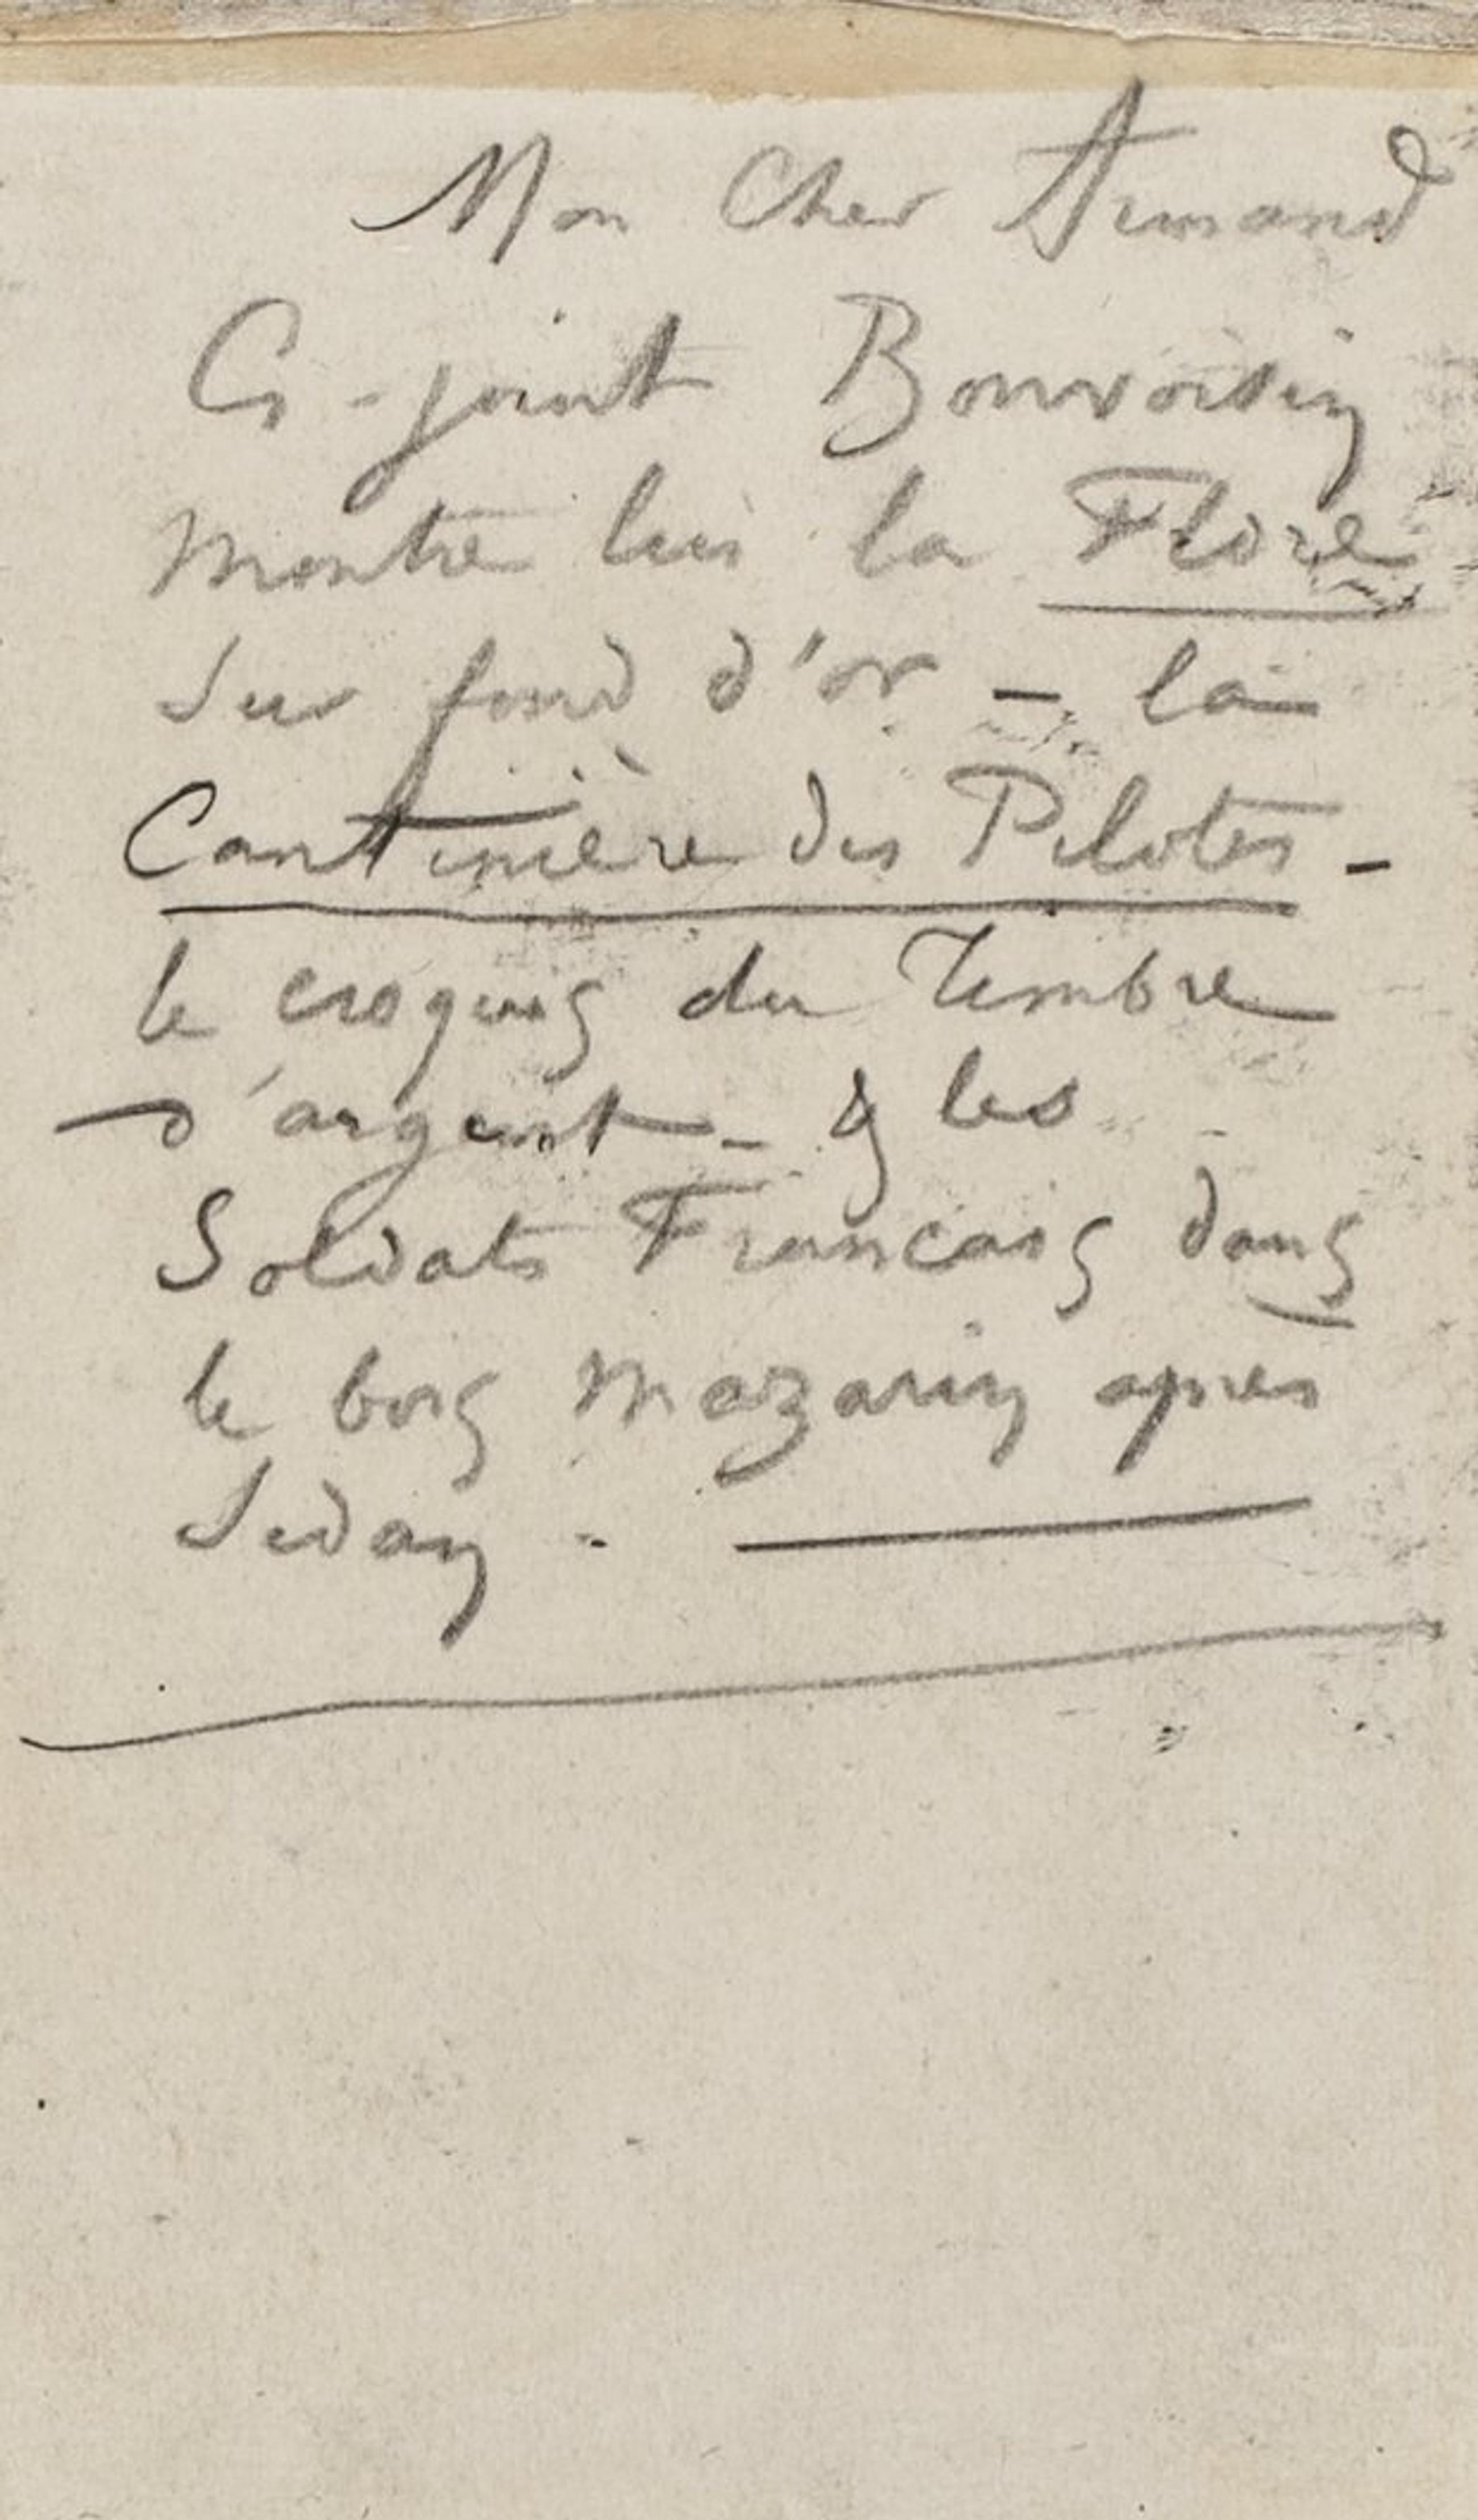 Mon Cher Armand
Ci-joint Bonvoisin
Montre lui la Flore
sur fond d'or - la
Cantinière des Pilotes -
le croquis du Timbre
d'argent - & les
Soldats Francais dans
le bois Mazarin après
Sedan -